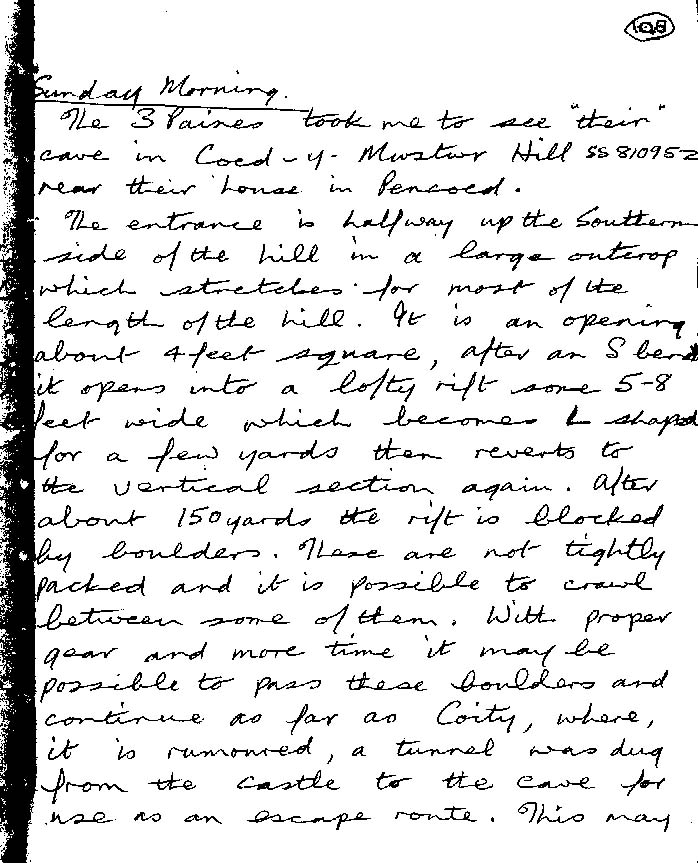 108
Sunday Morning.
The 3 Paines took me to see "their"
cave in Coed-y-Mwstwr Hill SS 810952
near their house in Pencoed.
The entrance is halfway up the Southern
side of the hill in a large outcrop
which stretches for most of the
length of the hill. It is an opening
about 4 feet square, after an S bend
it opens into a lofty rift some 5-8
feet wide which becomes L shaped
for a few yards then reverts to
the vertical section again. After
about 150 yards the rift is blocked
by boulders. These are not tightly
packed and it is possible to crawl
between some of them. With proper
gear and more time it may be
possible to pass these boulders and
continue as far as Coity, where,
it is rumoured, a tunnel was dug
from the castle to the cave for
use as an escape route. This may